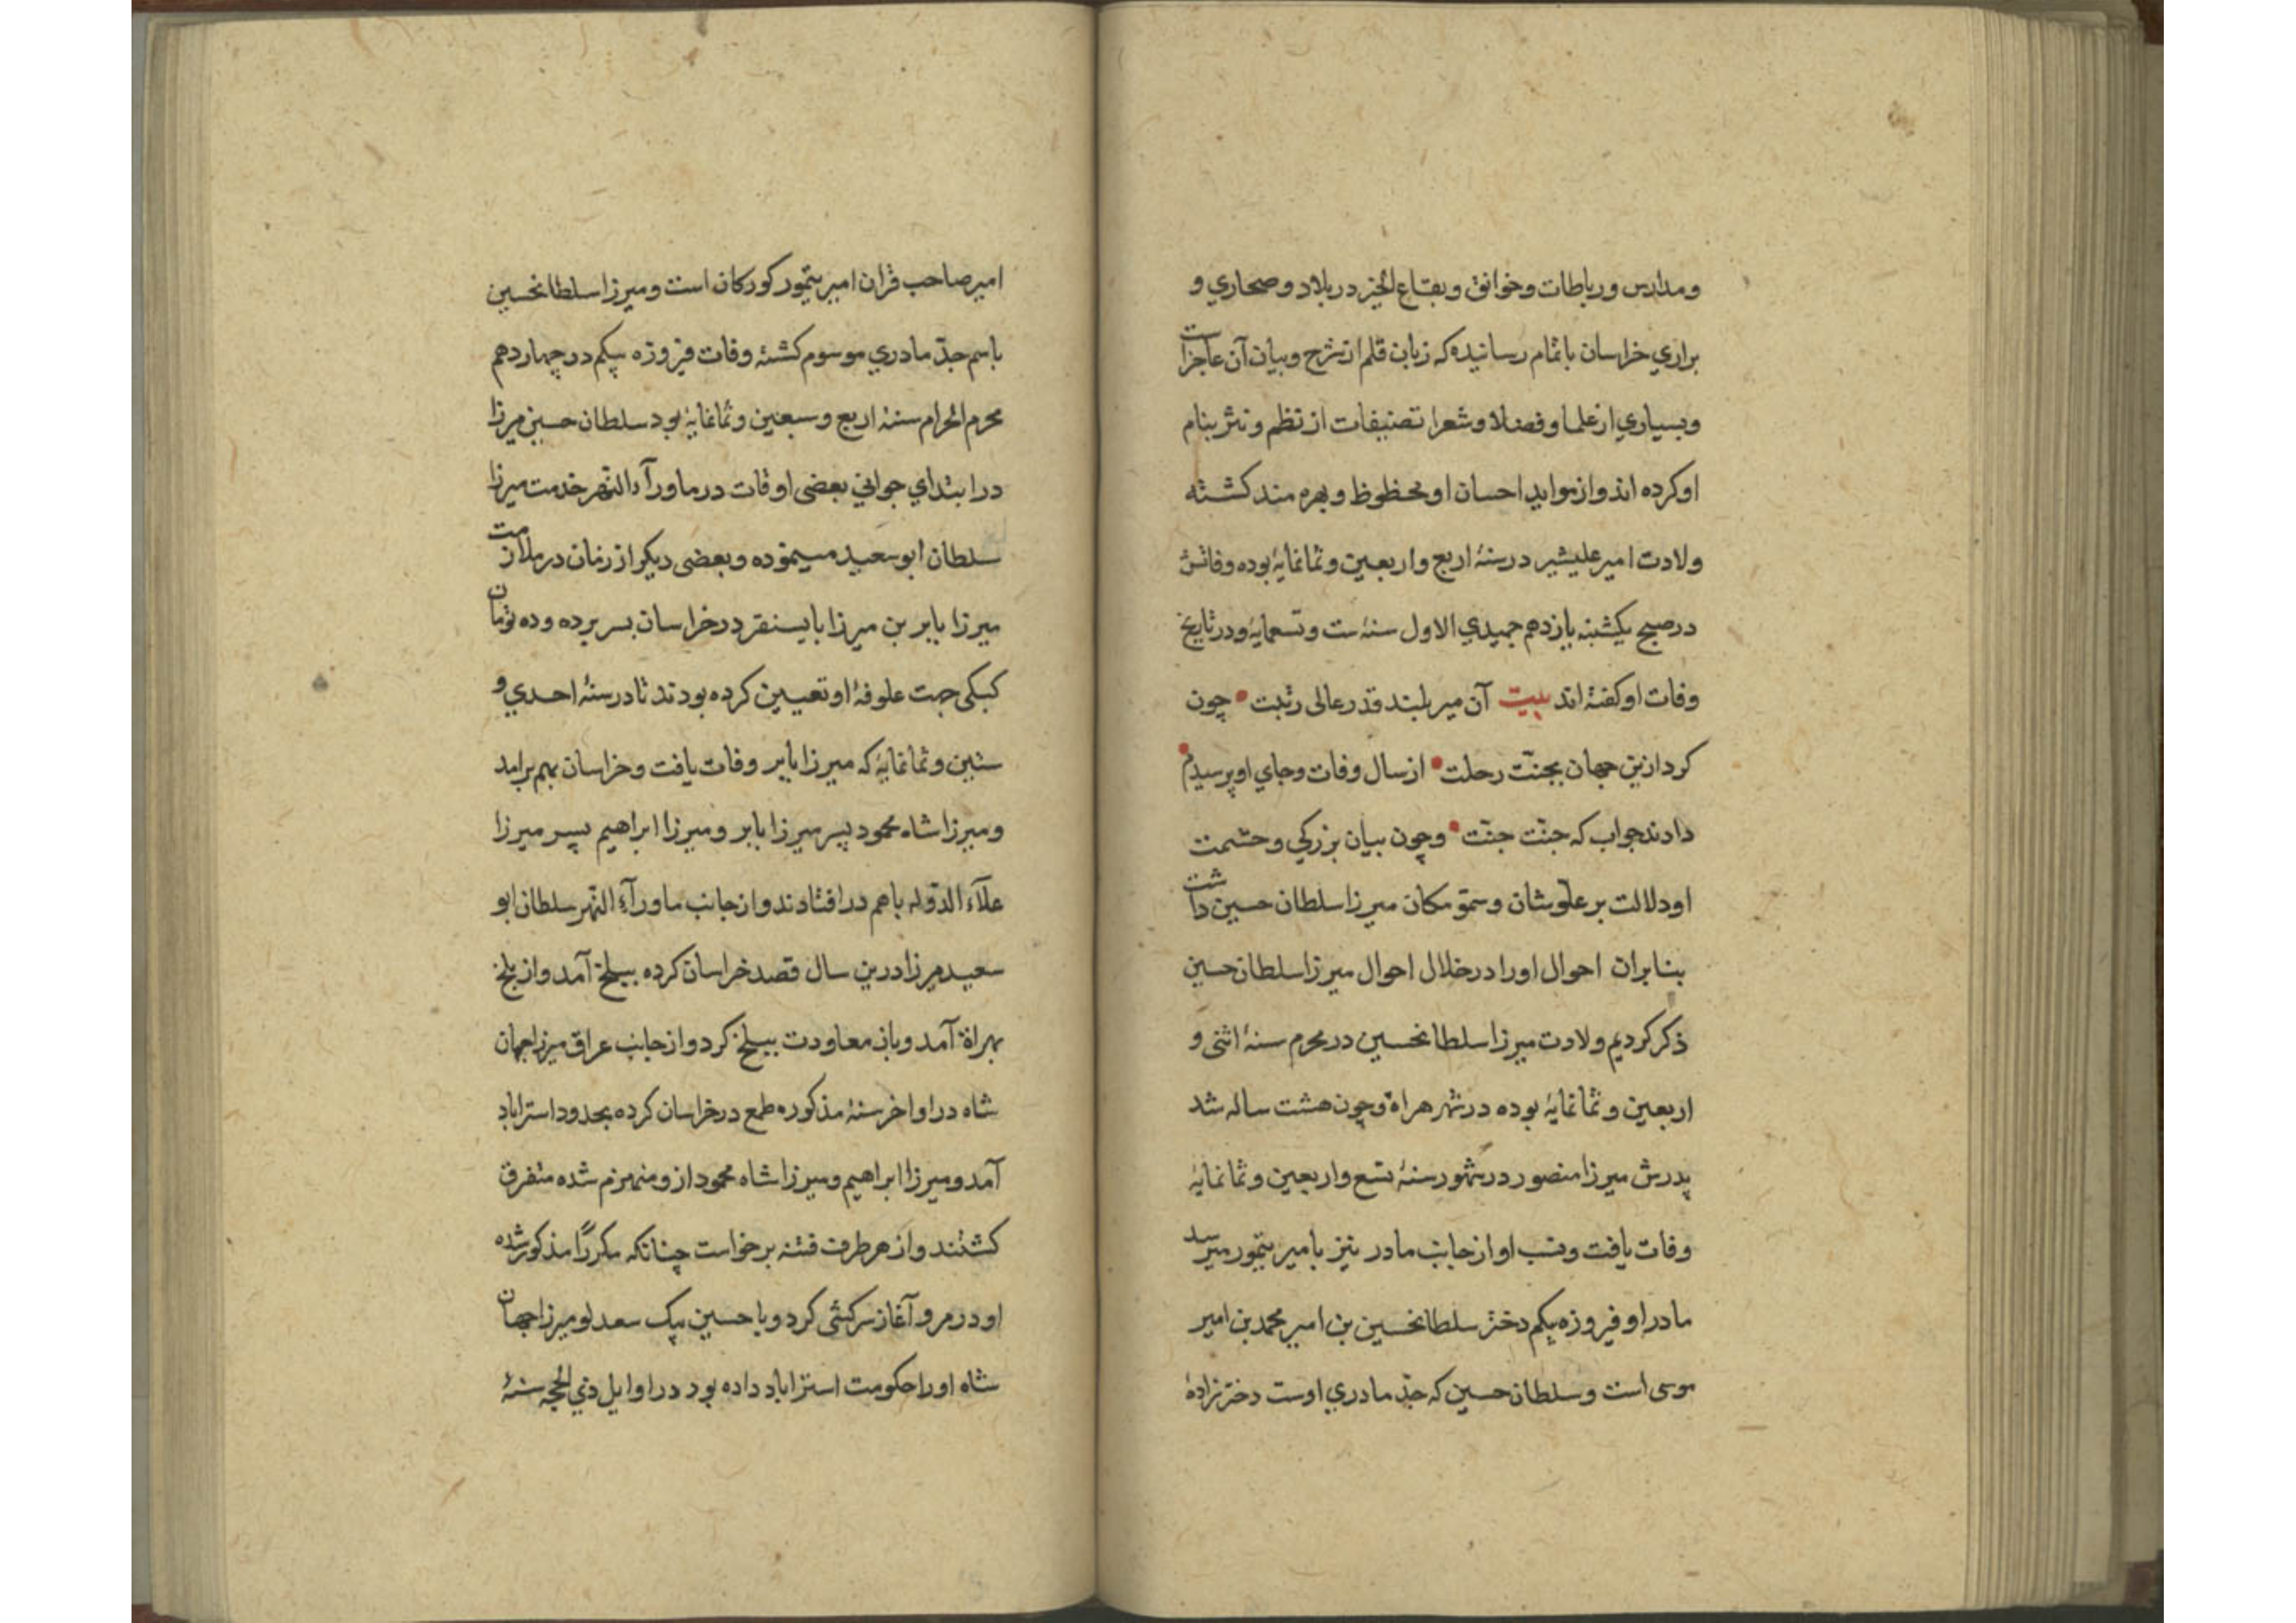 ومدارس ورباطات وخوانق وبقاع الخیر در بلاد وصحاري و
براري خراسان باتمام رسانیده که زبان قلم از شرح وبیان آن عاجزاست
وبسیاري از علما وفضلا وشعرا تصنیفات از نظم ونثر بنام
او کرده اند واز مواید احسان او محظوظ وبهره مند کشته
ولادت امیر علیشیر در سنهٔ اربع واربعین وثمانمایهٔ بوده وفاتش
در صبح یکشنبه یازدهم جمیدي الاول سنهٔ ست وتسعمایهٔ ودر تاریخ
وفات او کفته اند بیت آن میر بلند قدر عالی رتبت • چون
کرد ازین جهان بجنّت رحلت • از سال وفات وجاي او پرسیدم •
دادند جواب که جنّت جنّت • وچون بیان بزرکي وحشمت
او دلالت بر علّو شان وسموّ مکان میرزا سلطان حسین داشت
بنابران احوال او را در خلال احوال میرزا سلطان حسین
ذکر کردیم ولادت میرزا سلطانحسین در محرم سنهٔ اثنی و
اربعین وثمانمایهٔ بوده در شهر هراة وچون هشت ساله شد
پدرش میرزا منصور در شهور سنهٔ تسع واربعین وثمانمایهٔ
وفات یافت ونسب او از جانب مادر نیز بامیر تیمور میرسد
مادر او فیروزه بیکم دختر سلطانحسین بن امیر محمد بن امیر
موسی است وسلطان حسین که جدّ مادري اوست دخترزادهٔ
امیر صاحب قران امیر تیمور کورکان است ومیرزا سلطانحسین
باسم جدّ مادري موسوم کشتهٔ وفات فیروزه بیکم در چهاردهم
محرم الحرام سنهٔ اربع وسبعین وثمانمایهٔ بود سلطان حسین میرزا
در ابتداي جواني بعضی اوقات در ماورآء النّهر خدمت میرزا
سلطان ابو سعید میسیموده وبعضی دیکر از زمان در ملازمت
میرزا بابر بن میرزا بایسنقر در خراسان بسر برده وده تومان
کبکی جهت علوفهٔ او تعیین کرده بودند تا در سنهٔ احدي و
ستین وثمانمایهٔ که میرزا بابر وفات یافت وخراسان بهم برامد
ومیرزا شاه محمود پسر میرزا بابر ومیرزا ابراهیم پسر میرزا
علآء الدّوله باهم در افتادند واز جانب ماورآء النّهر سلطان ابو
سعید میرزا درین سال قصد خراسان کرده ببلخ آمد واز بلخ
بهراة آمد وباز معاودت ببلخ کرد واز جانب عراق میرزا جهان
شاه در اواخر سنهٔ مذکوره طمع در خراسان کرده بحدود استراباد
آمد ومیرزا ابراهیم ومیرزا شاه محمود از و منهزم شده متفرق
کشتند واز هر طرف فتنه برخواست چنانکه مکررًا مذکور شده
او در مرو آغاز سرکشی کرد وبا حسین بیک سعدلو میرزا جهان
شاه او را حکومت استراباد داده بود در اوایل ذي الحجه سنهٔ